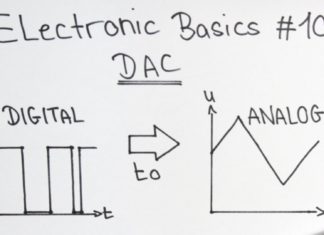 ELectronic Basics #10
DAC
DIGITAL
to
u
ANALOG
t